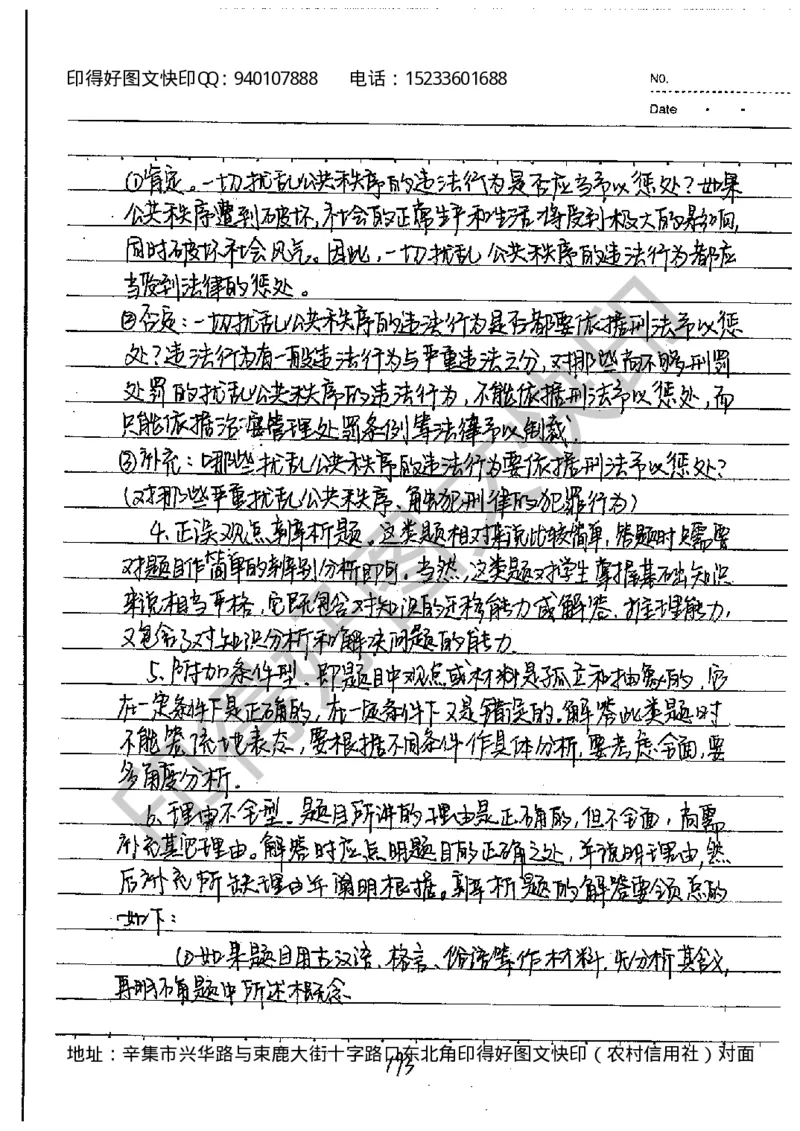 印得好图文快印QQ：940107888 电话：15233601688
NO.
Date
①肯定。一切扰乱公共秩序的违法行为是否应当予以惩处？如果
公共秩序遭到破坏，社会的正常生产和生活将受到极大的影响，
同时破坏社会风气。因此，一切扰乱公共秩序的违法行为都应
当受到法律的惩处。
②否定：一切扰乱公共秩序的违法行为是否都要依据刑法予以惩
处？违法行为有一般违法行为与严重违法之分，对那些尚不够刑罚
处罚的扰乱公共秩序的违法行为，不能依据刑法予以惩处，而
只能依据治安管理处罚条例等法律予以制裁。
③补充：哪些扰乱公共秩序的违法行为要依据刑法予以惩处？
（对那些严重扰乱公共秩序、触犯刑律的犯罪行为）
4．正误观点辨析题。这类题相对来说比较简单，答题时只需要
对题目作简单的辨别分析即可。当然，这类题对学生掌握基础知识
来说相当严格，它既包含对知识的迁移能力或解答、推理能力，
又包含了对知识分析和解决问题的能力。
5．附加条件型．即题目中观点或材料是孤立和抽象的，它
在一定条件下是正确的，在一定条件下又是错误的。解答此类题时
不能笼统地表态，要根据不同条件作具体分析，要考虑全面，要
多角度分析．
6．理由不全型．题目所讲的理由是正确的，但不全面，尚需
补充其它理由。解答时应点明题目的正确之处，并说明理由，然
后补充所缺理由并阐明根据。辨析题的解答要领总的
如下：
(1)如果题目用古汉语、格言、俗语等作材料．先分析其含义，
再明确题中所述概念．
地址：辛集市兴华路与束鹿大街十字路口东北角印得好图文快印（农村信用社）对面
193
印得好图文快印